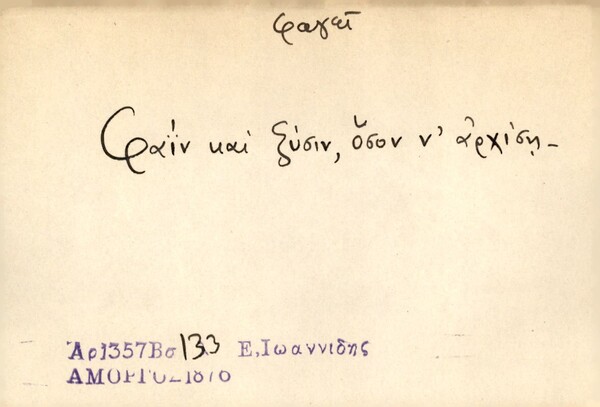 φαγεῖ
Φαΐν καὶ ξύσιν, ὅσον ν' ἀρχίσῃ -
Ἀρ1357Βσ 133 Ε,Ιωαννιδης
ΑΜΟΡΓΟΣ1876